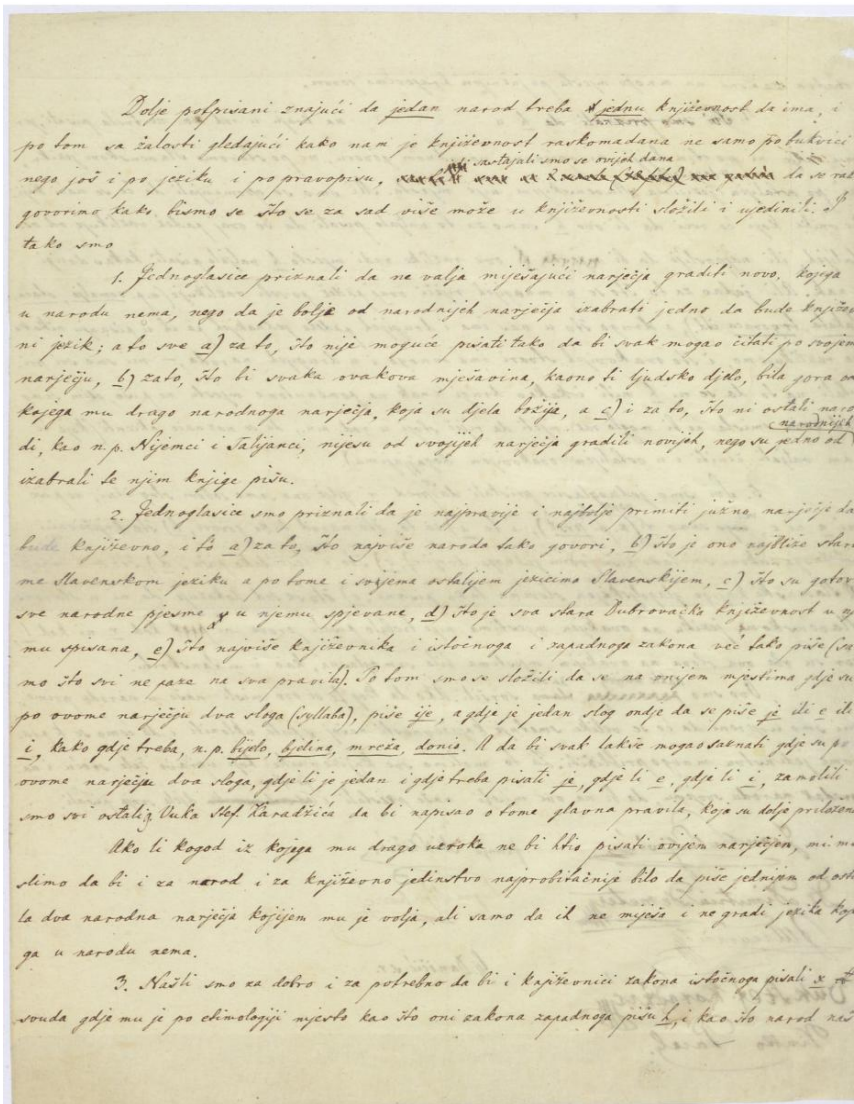 Dolje potpisani znajući da jedan narod treba jednu književnost da ima, i
po tom sa žalosti gledajući kako nam je književnost raskomadana ne samo po bukvici
sastajali smo se ovijeh dana
nego još i po jeziku i po pravopisu, da se raz
govorimo kako bismo se što se za sad više može u književnosti složili i ujedinili. I
tako smo
1. Jednoglasice priznali da ne valja miješajući narječja graditi novo, kojega
u narodu nema, nego da je bolje od narodnijeh narječija izabrati jedno da bude književ
ni jezik; a to sve a) za to, što nije moguće pisati tako da bi svak mogao čitati po svojem
narječju, b) zato, što bi svaka ovakova mješavina, kaono ti ljudsko djelo, bila gora od
kojega mu drago narodnoga narječja, koja su djela božija, a c) i za to, što ni ostali naro
narodnijeh
di, kao n.p. Nijemci i Talijanci, nijesu od svojijeh narječja gradili novijeh, nego su jedno od
izabrali te njim knjige pišu.
2. Jednoglasice smo priznali da je najpravije i najbolje primiti južno narječje da
bude književno, i to a) za to, što najviše naroda tako govori, b) što je ono najbliže staro
me Slavenskom jeziku a po tome i svijema ostalijem jezicima Slavenskijem, c) što su gotovo
sve narodne pjesme u njemu spjevane, d) što je sva stara Dubrovačka književnost u nje
mu spisana, e) što najviše književnika i istočnoga i zapadnoga zakona već tako piše (sa
mo što svi ne paze na sva pravila). Po tom smo se složili da se na onijem mjestima gdje su
po ovome narječju dva sloga (syllaba), piše ije, a gdje je jedan slog ondje da se piše je ili e ili
i, kako gdje treba, n.p. bijelo, bjelina, mreža, donio. A da bi svak lakše mogao saznati gdje su po
ovome narječju dva sloga, gdje li je jedan i gdje treba pisati je, gdje li e, gdje li i, zamolili
smo svi ostali g. Vuka Stef. Karadžića da bi napisao o tome glavna pravila, koja su dolje priložena
Ako li kogod iz kojega mu drago uzroka ne bi htio pisati ovijem narječjem, mi mi
slimo da bi i za narod i za književno jedinstvo najprobitačnije bilo da piše jednijem od osta
la dva narodna narječja kojijem mu je volja, ali samo da ih ne miješa i ne gradi jezika koje
ga u narodu nema.
3. Našli smo za dobro i za potrebno da bi i književnici zakona istočnoga pisali x
svuda gdje mu je po etimologiji mjesto kao što oni zakona zapadnoga pišu h, i kao što narod naš